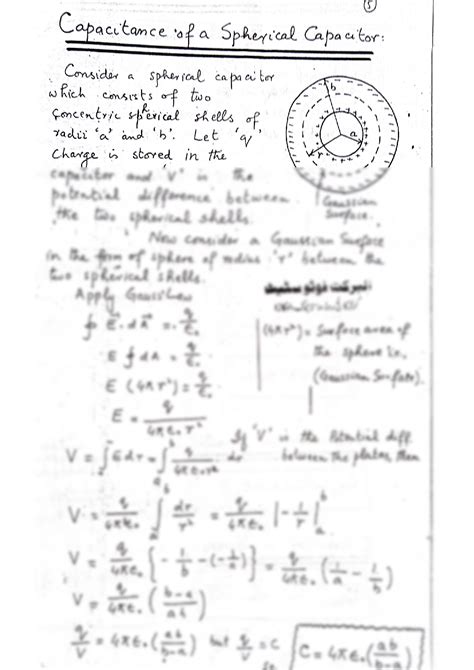 5
Capacitance of a Spherical Capacitor:
Consider a spherical capacitor
which consists of two
concentric spherical shells of
radii 'a' and 'b'. Let 'q'
charge is stored in the
capacitor and 'V' is the
potential difference between
the two spherical shells.
b
a
r
Gaussian
Surface.
Now consider a Gaussian Surface
in the form of sphere of radius 'r' between the
two spherical shells.
Apply Gauss Law
∮ E. dA = q/ε₀
E ∮ dA = q/ε₀
E (4πr²) = q/ε₀
E = q/4πε₀r²
(4πr²) = Surface area of
the sphere i.e.
(Gaussian Surface).
If 'V' is the Potential diff.
between the plates, then
V = ∫ E dr = ∫ₐᵇ q/4πε₀r² dr
V = q/4πε₀ ∫ₐᵇ dr/r² = q/4πε₀ |-1/r|ₐᵇ
V = q/4πε₀ {-1/b -(-1/a)} = q/4πε₀ (1/a - 1/b)
V = q/4πε₀ (b-a/ab)
q/V = 4πε₀ (ab/b-a) but q/V = C
C = 4πε₀ (ab/b-a)